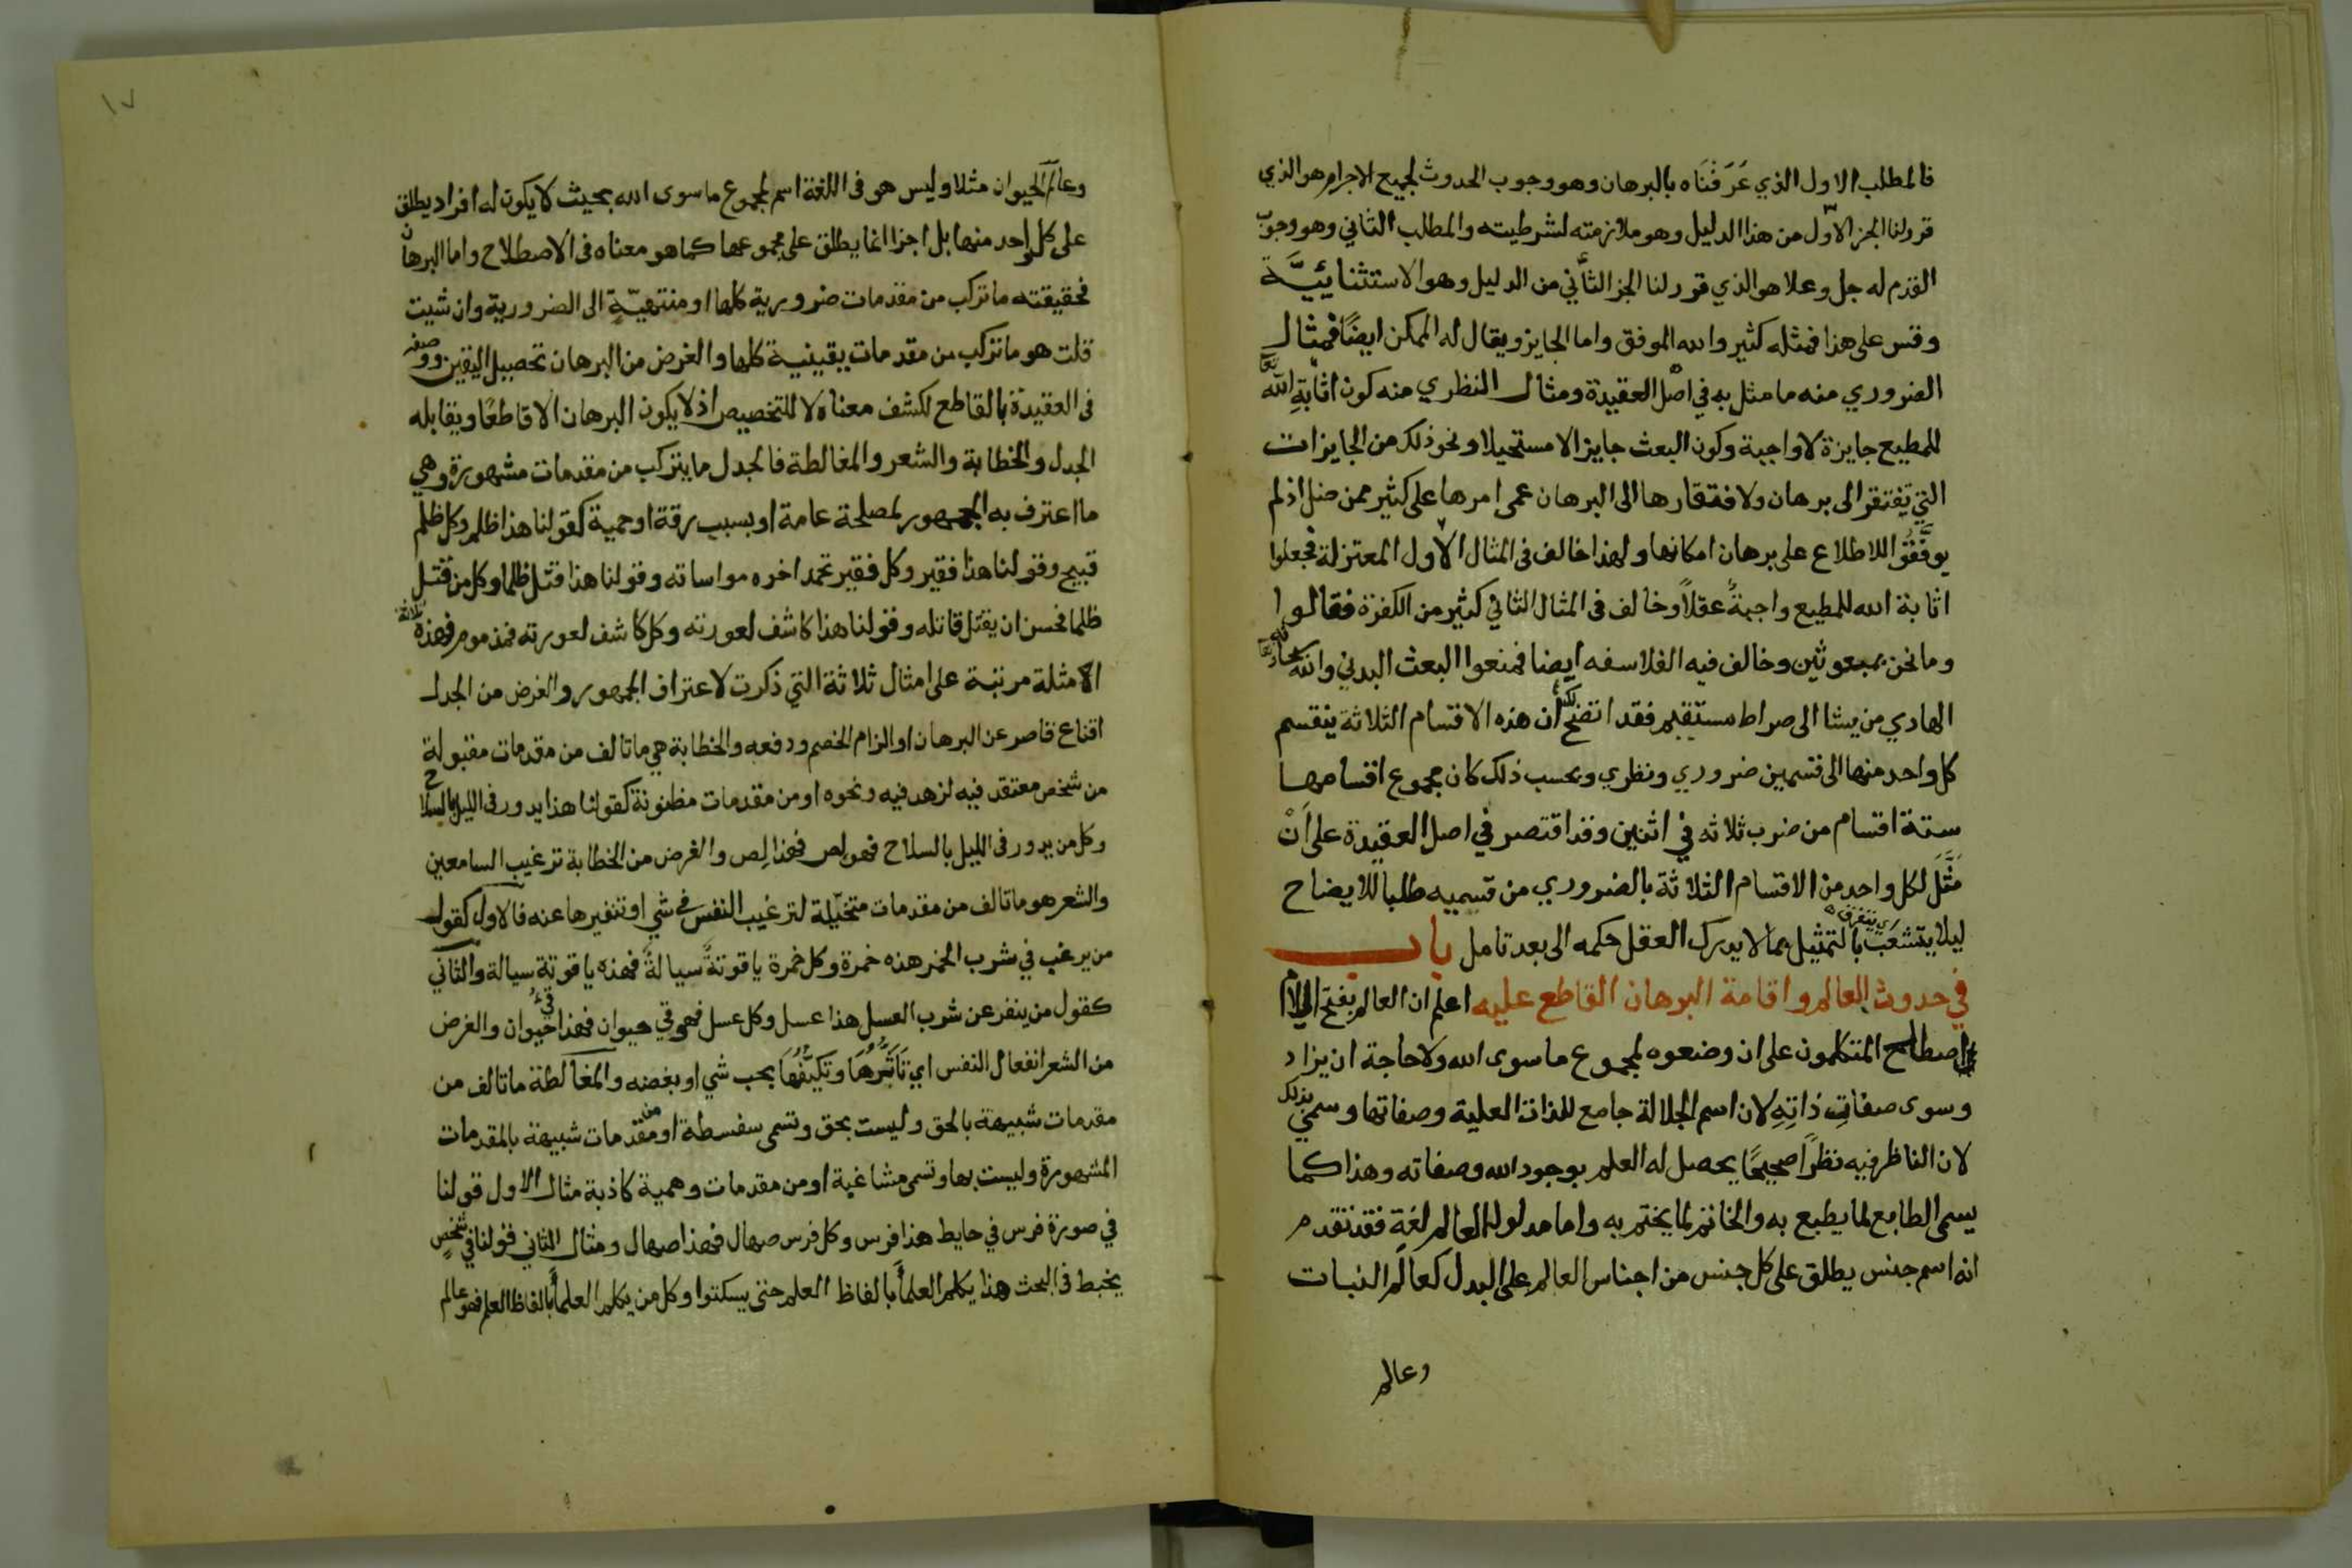 فالمطلب الاول الذي عَرَفْنَاه بالبرهان وهو وجوب الحدوث لجميع الاجرام هو الذي
قرر لنا الجز الاول من هذا الدليل وهو ملازمته لشرطيته والمطلب الثاني وهو وجوب
القدم له جل وعلا هو الذي قرر لنا الجز الثاني من الدليل وهو الاستثنائيَّة
وقس على هذا فمثله كثير والله الموفق واما الجايز ويقال له الممكن ايضًا فمثال
الضروري منه ما مثل به في اصل العقيدة ومثال النظري منه كون اثابة الله تعا
للمطيع جايزة لا واجبة وكون البعث جايزا لا مستحيلا ونحو ذلك من الجايزات
التي تفتقر الى برهان ولافتقارها الى البرهان عمى امرها على كثير ممن ضل اذ لم
يوفَّقُوا للاطلاع على برهان امكانها ولهذا خالف فى المثال الاول المعتزلة فجعلوا
اثابة الله للمطيع واجبةً عقلاً وخالف فى المثال الثاني كثير من الكفرة فقالوا
وما نحن بمبعوثين وخالف فيه الفلاسفه ايضا فمنعوا البعث البدني والله سبحانه تعا
الهادي من يشا الى صراط مستقيم فقد اتضح لك أن هذه الاقسام الثلاثة ينقسم
كل واحد منها الى قسمين ضروري ونظري وبحسب ذلك كان مجموع اقسامها
ستة اقسام من ضرب ثلاثه في اثنين وقد اقتصر في اصل العقيدة على اَنْ
مَثَّلَ لكل واحد من الاقسام الثلاثة بالضروري من قسميه طلبا للايضاح
ليلا يتشعَّبَ اي يتفرق بالتمثيل بما لا يدرك العقل حكمه الى بعد تامل باب
في حدوث العالم واقامة البرهان القاطع عليه اعلم ان العالم بفتح اللام
اصطلح المتكلمون على ان وضعوه لمجموع ما سوى الله ولا حاجة ان يزاد
وسوى صفاتِ ذاتِهِ لان اسم الجلالة جامع للذات العلية وصفاتها وسمي بذلك
لان الناظر فيه نظرًا صحيحًا يحصل له العلم بوجود الله وصفاته وهذا كما
يسمى الطابع لما يطبع به والخاتم لما يختم به واما مدلول العالم لغة فقد تقدم
انه اسم جنس يطلق على كل جنس من اجناس العالم على البدل كعالم النبات
وعالم
١٧
وعالم الحيوان مثلا وليس هو فى اللغة اسم لمجموع ما سوى الله بحيث لا يكون له افراد يطلق
على كل واحد منها بل اجزا انما يطلق على مجموعها كما هو معناه فى الاصطلاح واما البرهان
فحقيقته ما تركب من مقدمات ضرورية كلها او منتهيّة الى الضرورية وان شيت
قلت هو ما تركب من مقدمات يقينية كلها والغرض من البرهان تحصيل اليقين ووصفه
فى العقيدة بالقاطع لكشف معناه لا للتخصيص اذ لا يكون البرهان الا قاطعًا ويقابله
الجدل والخطابة والشعر والمغالطة فالجدل ما يتركب من مقدمات مشهورة وهي
ما اعترف به الجمهور لمصلحة عامة او بسبب رقة او حمية كقولنا هذا ظلم وكل ظلم
قبيح وقولنا هذا فقير وكل فقير تحمد اخره مواساته وقولنا هذا قتل ظلما وكل من قتل
ظلما فحسن ان يقتل قاتله وقولنا هذا كاشف لعورته وكل كاشف لعورته فمذموم فهذه ثلاثة
الامثلة مرتبة على امثال ثلاثة التي ذكرت لاعتراف الجمهور والغرض من الجدل
اقناع قاصر عن البرهان او الزام الخصم ودفعه والخطابة هي ما تالف من مقدمات مقبولة
من شخص معتقد فيه لزهد فيه ونحوه او من مقدمات مظنونة كقولنا هذا يدور فى الليل بالسلاح
وكل من يدور فى الليل بالسلاح فهو لص فهذا لِص والغرض من الخطابة ترغيب السامعين
والشعر هو ما تالف من مقدمات متخيّلة لترغيب النفس في شي او تنفيرها عنه فالاول كقول
من يرغب في شرب الخمر هذه خمرة وكل خمرة ياقوتةً سيالةً فهذه ياقوتة سيالة والثاني
كقول من ينفر عن شرب العسل هذا عسل وكل عسل فهو قي حيوان فهذا قيءُ حيوان والغرض
من الشعر انفعال النفس اي تَاَثُّرُهَا وتَكيُّفُهَا بحب شي او بغضه والمغالطة ما تالف من
مقدمات شبيهة بالحق وليست بحق وتسمى سفسطة او من مقدمات شبيهة بالمقدمات
المشهورة وليست بها وتسمى مشاغبة او من مقدمات وهمية كاذبة مثال الاول قولنا
في صورة فرس في حايط هذا فرس وكل فرس صهال فهذا صهال ومثال الثاني قولنا في شخصٍ
يخبط فى البحث هذا يكلم العلمأ بالفاظ العلم حتى يسكتوا وكل من يكلم العلمأ بالفاظ العلم فهو عالم